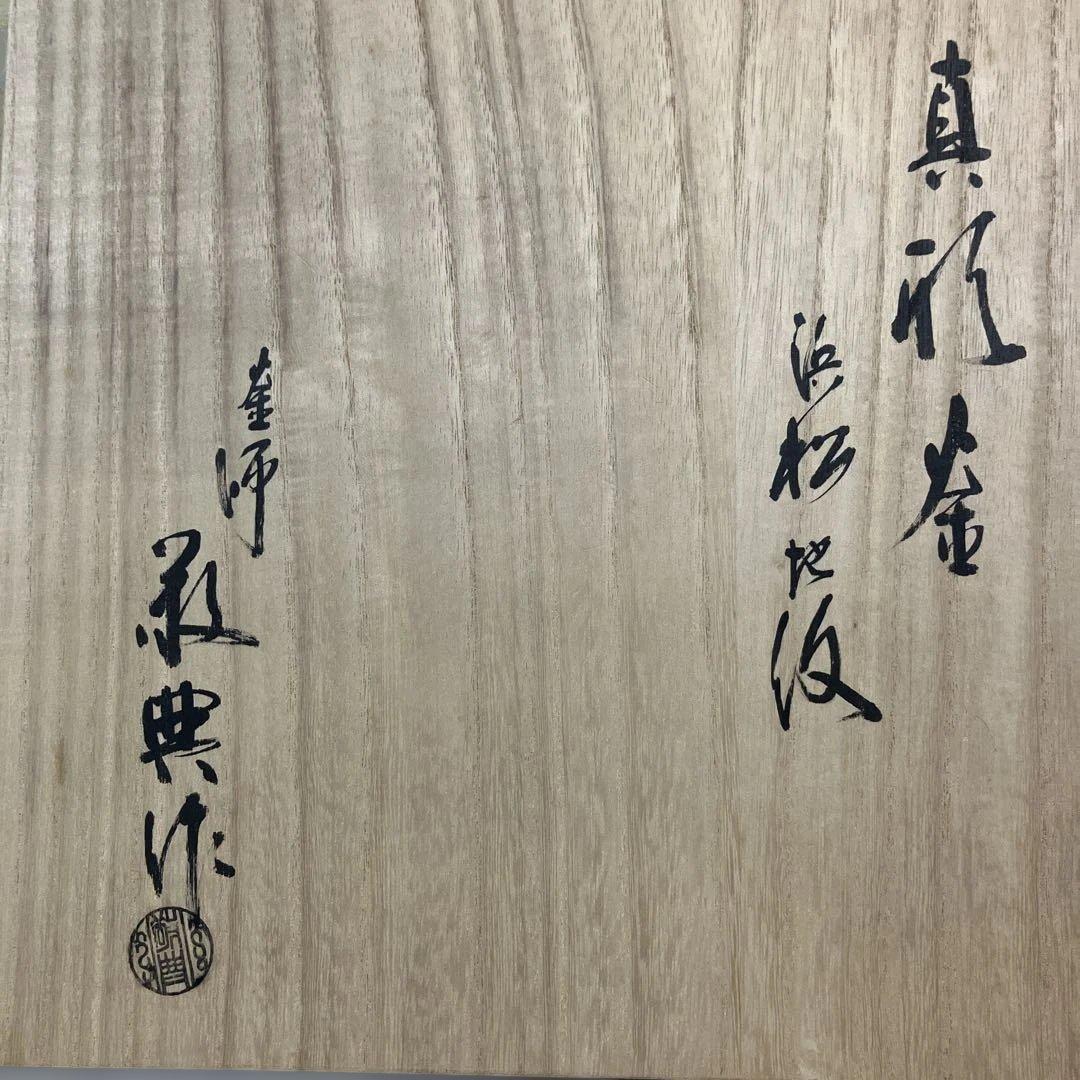 真形釜
浜松地紋
釜師
敬典作